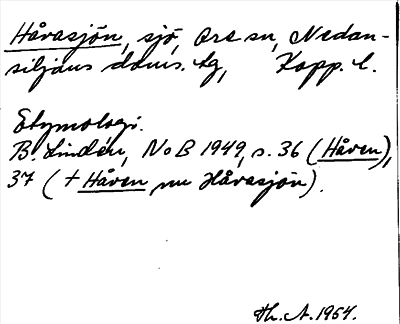 Håvasjön, sjö, Ore sn, Nedan-
siljans doms. tg, Kopp. l.
Etymologi.
B. Lindén, NoB 1949, s. 36 (Håven),
37 (+ Håven nu Håvasjön).
Th. A. 1964.